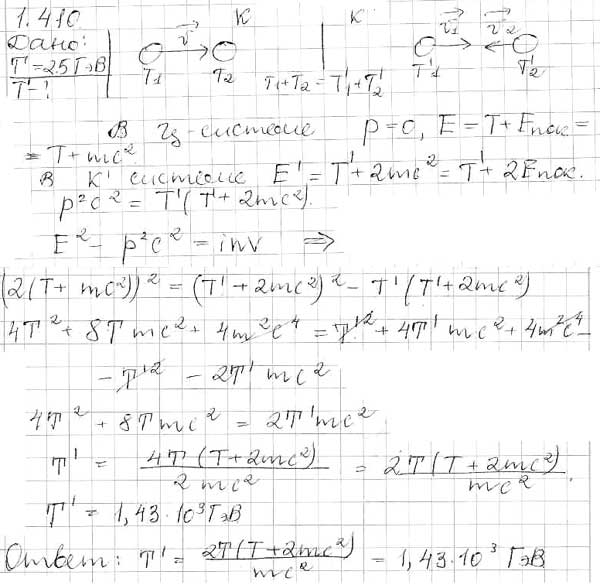 1.410
Дано:
T' = 25 ГэВ
T' - ?
K
v
T1 T2
T1 + T2 = T'1 + T'2
K
v1 v2
T'1 T'2
В Ц-системе p = 0, E = T + Eпок =
= T + mc²
В K' системе E' = T' + 2mc² = T' + 2Eпок.
p²c² = T'(T' + 2mc²).
E² - p²c² = inv ⇒
(2(T + mc²))² = (T' + 2mc²)² - T'(T' + 2mc²)
4T² + 8Tmc² + 4m²c⁴ = T'² + 4T'mc² + 4m²c⁴ -
- T'² - 2T'mc²
4T² + 8Tmc² = 2T'mc²
T' = 4T(T + 2mc²) / 2mc² = 2T(T + 2mc²) / mc².
T' = 1,43·10³ ГэВ
Ответ: T' = 2T(T + 2mc²) / mc² = 1,43·10³ ГэВ